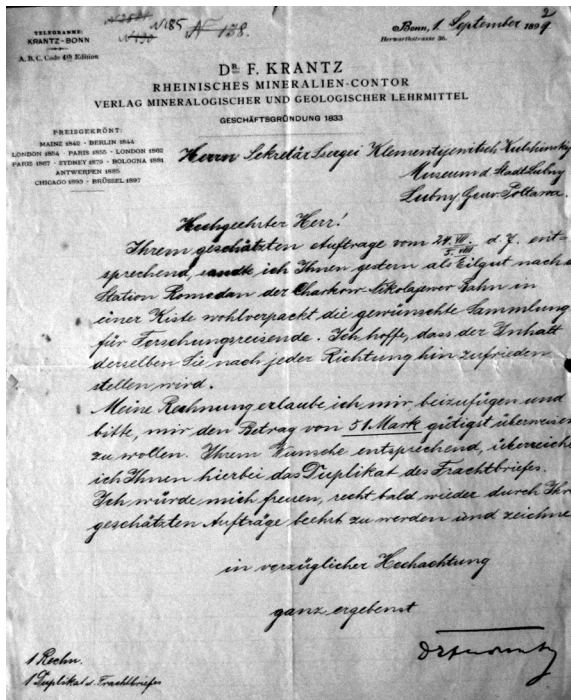 TELEGRAMME:
KRANTZ-BONN
A.B.C. Code 4th Edition
N185 N 138.
Bonn, 1 September 1899
Herwarthstrasse 36.
Dr. F. KRANTZ
RHEINISCHES MINERALIEN-CONTOR
VERLAG MINERALOGISCHER UND GEOLOGISCHER LEHRMITTEL
GESCHÄFTSGRÜNDUNG 1833
PREISGEKRÖNT:
MAINZ 1842 · BERLIN 1844
LONDON 1854 · PARIS 1855 · LONDON 1862
PARIS 1867 · SYDNEY 1879 · BOLOGNA 1881
ANTWERPEN 1885
CHICAGO 1893 · BRÜSSEL 1897
Herrn Sekretär Ssergei Klementijewitsch Kulshinsky
Museum d. Stadt Lubny
Lubny, Gouv. Poltawa.
Hochgeehrter Herr!
Ihrem geschätzten Auftrage vom 24. VII. / 5. VIII. d. J. ent-
sprechend, sandte ich Ihnen gestern als Eilgut nach d
Station Romodan der Charkow-Nikolajewer Bahn in
einer Kiste wohlverpackt die gewünschte Sammlung
für Forschungsreisende. Ich hoffe, dass der Inhalt
derselben Sie nach jeder Richtung hin zufrieden
stellen wird.
Meine Rechnung erlaube ich mir beizufügen und
bitte, mir den Betrag von 51 Mark gütigst überweisen
zu wollen. Ihrem Wunsche entsprechend, überreiche
ich Ihnen hierbei das Duplikat des Frachtbriefes.
Ich würde mich freuen, recht bald wieder durch Ihre
geschätzten Aufträge beehrt zu werden und zeichne
in vorzüglicher Hochachtung
ganz ergebenst
Dr F Krantz
1 Rechn.
1 Duplikat d. Frachtbriefes